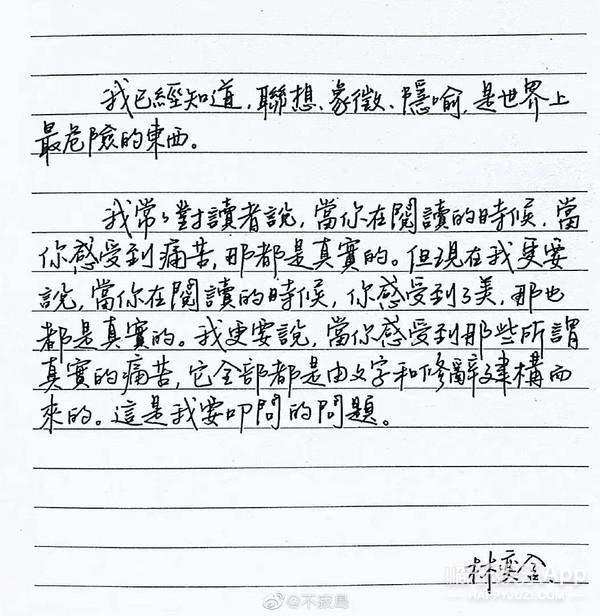 我已經知道,聯想、象徵、隱喻,是世界上
最危險的東西。
我常々對讀者說,當你在閱讀的時候,當
你感受到痛苦,那都是真實的。但現在我更要
說,當你在閱讀的時候,你感受到了美,那也
都是真實的。我更要說,當你感受到那些所謂
真實的痛苦,它全部都是由文字和修辭建構而
來的。這是我要叩問的問題。
林奕含
@不寂島
App
HAPPYJUZI.COM